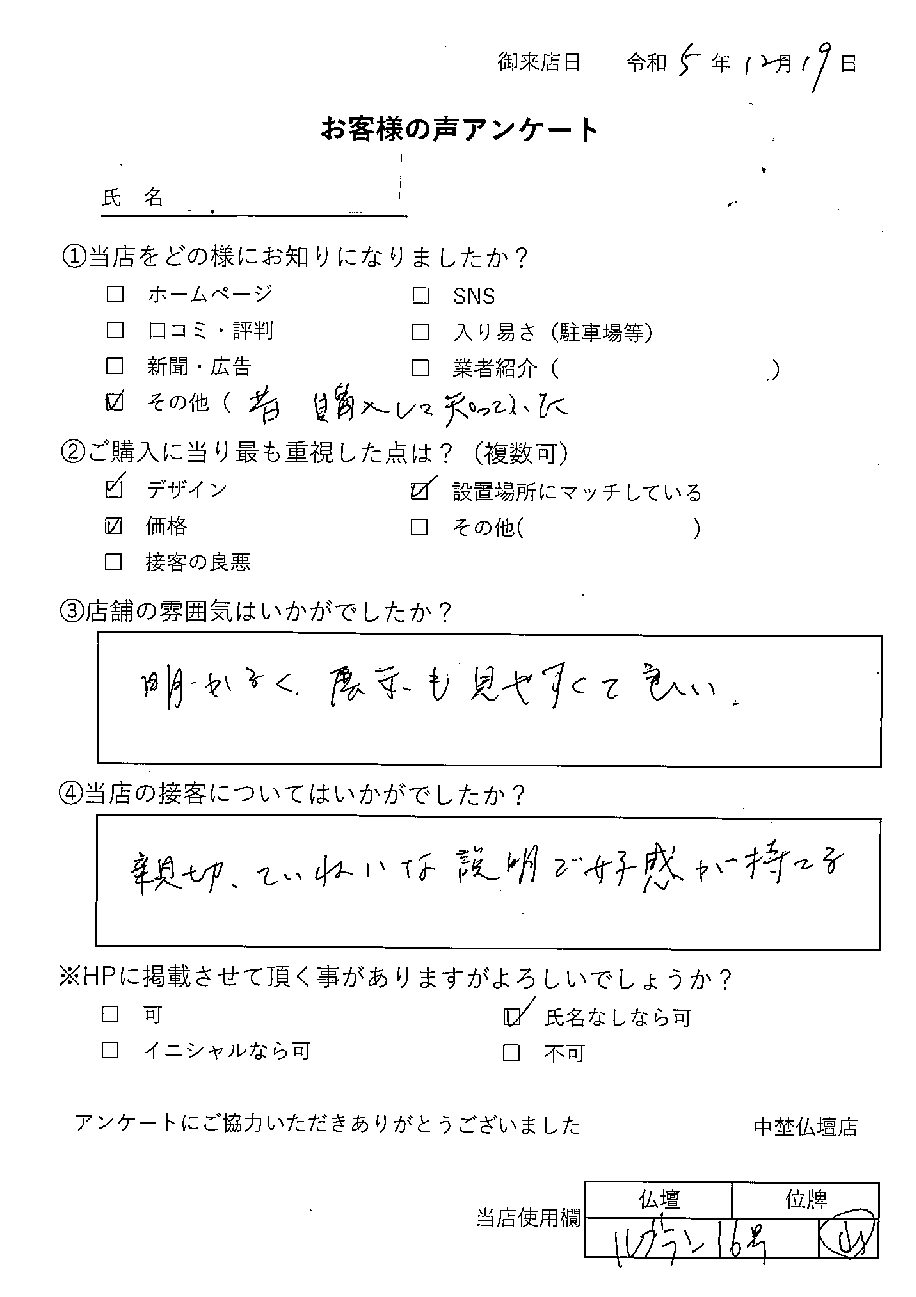 御来店日 令和 5 年 12月 19 日
お客様の声アンケート
氏 名
①当店をどの様にお知りになりましたか？
□ ホームページ □ SNS
□ 口コミ・評判 □ 入り易さ（駐車場等）
□ 新聞・広告 □ 業者紹介（ ）
☑ その他（ 昔 購入して知っていた
②ご購入に当り最も重視した点は？（複数可）
☑ デザイン ☑ 設置場所にマッチしている
☑ 価格 □ その他( )
□ 接客の良悪
③店舗の雰囲気はいかがでしたか？
明かるく、展示も見やすくて良い。
④当店の接客についてはいかがでしたか？
親切、ていねいな説明で好感が持てる
※HPに掲載させて頂く事がありますがよろしいでしょうか？
□ 可 ☑ 氏名なしなら可
□ イニシャルなら可 □ 不可
アンケートにご協力いただきありがとうございました 中埜仏壇店
仏壇 位牌
当店使用欄
ルグラン16号